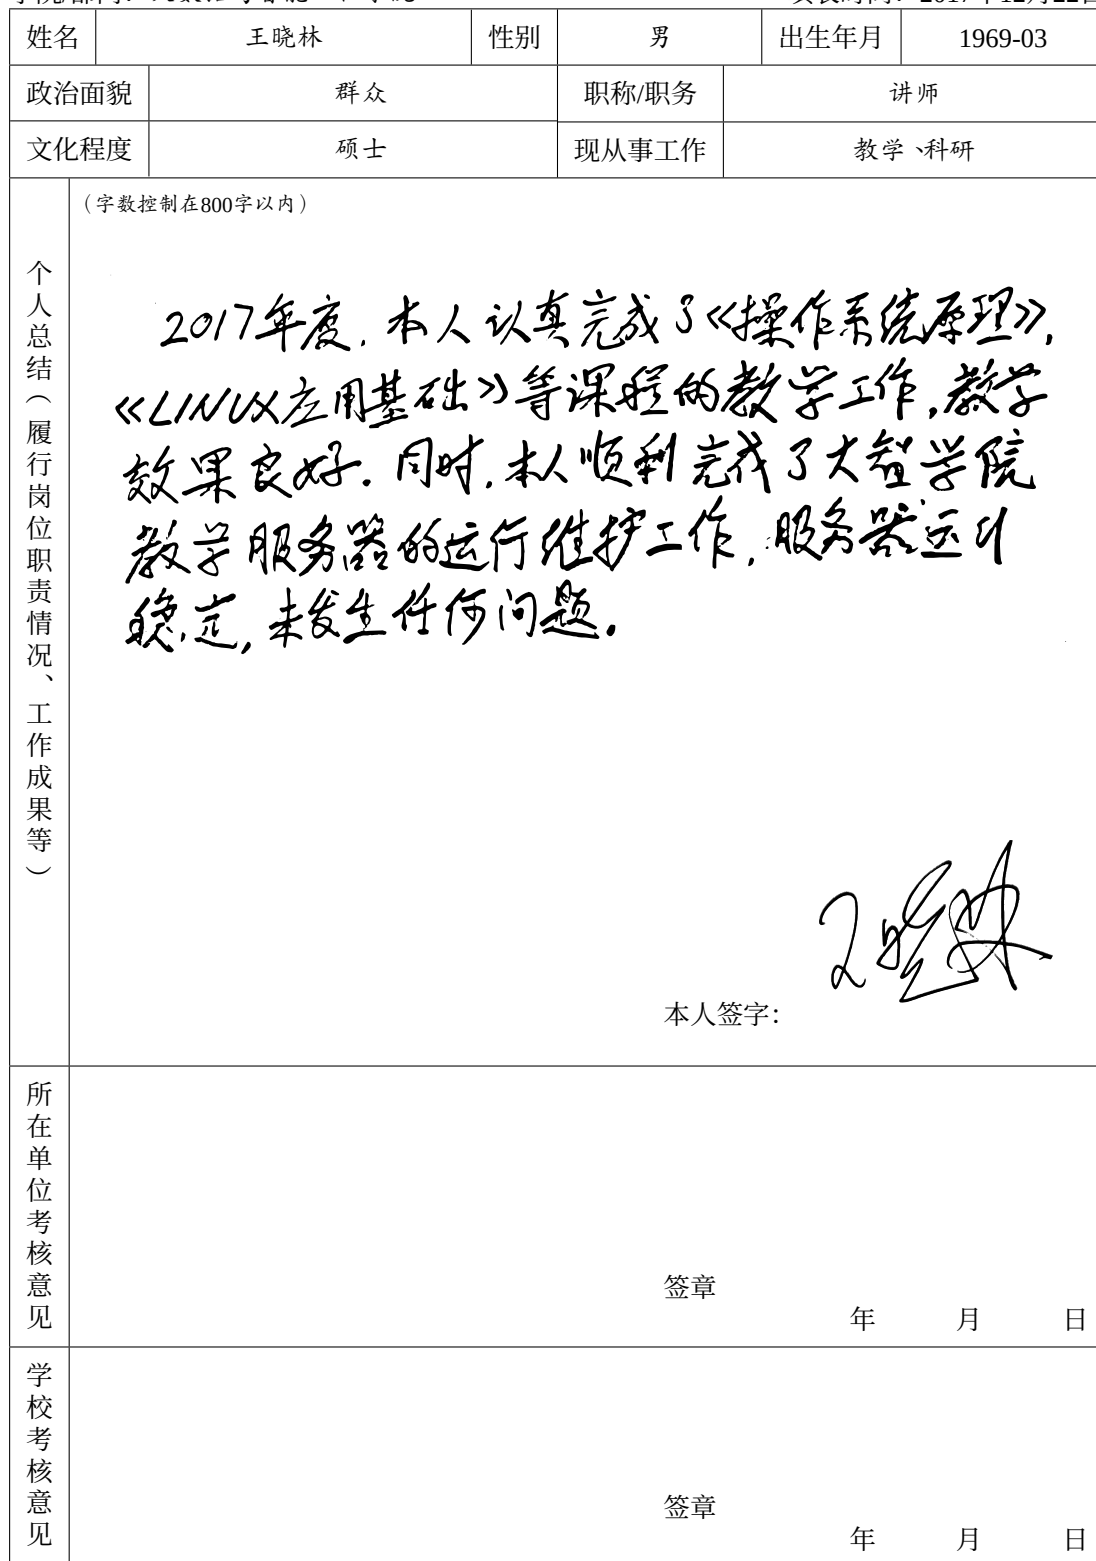 2017年12月22日
姓名 王晓林 性别 男 出生年月 1969-03
政治面貌 群众 职称/职务 讲师
文化程度 硕士 现从事工作 教学、科研
（字数控制在800字以内）
个人总结（履行岗位职责情况、工作成果等）
2017年度，本人认真完成了《操作系统原理》，
《LINUX应用基础》等课程的教学工作，教学
效果良好．同时，本人顺利完成了大智学院
教学服务器的运行维护工作，服务器运行
稳定，未发生任何问题．
王晓林
本人签字：
所在单位考核意见
签章
年 月 日
学校考核意见
签章
年 月 日